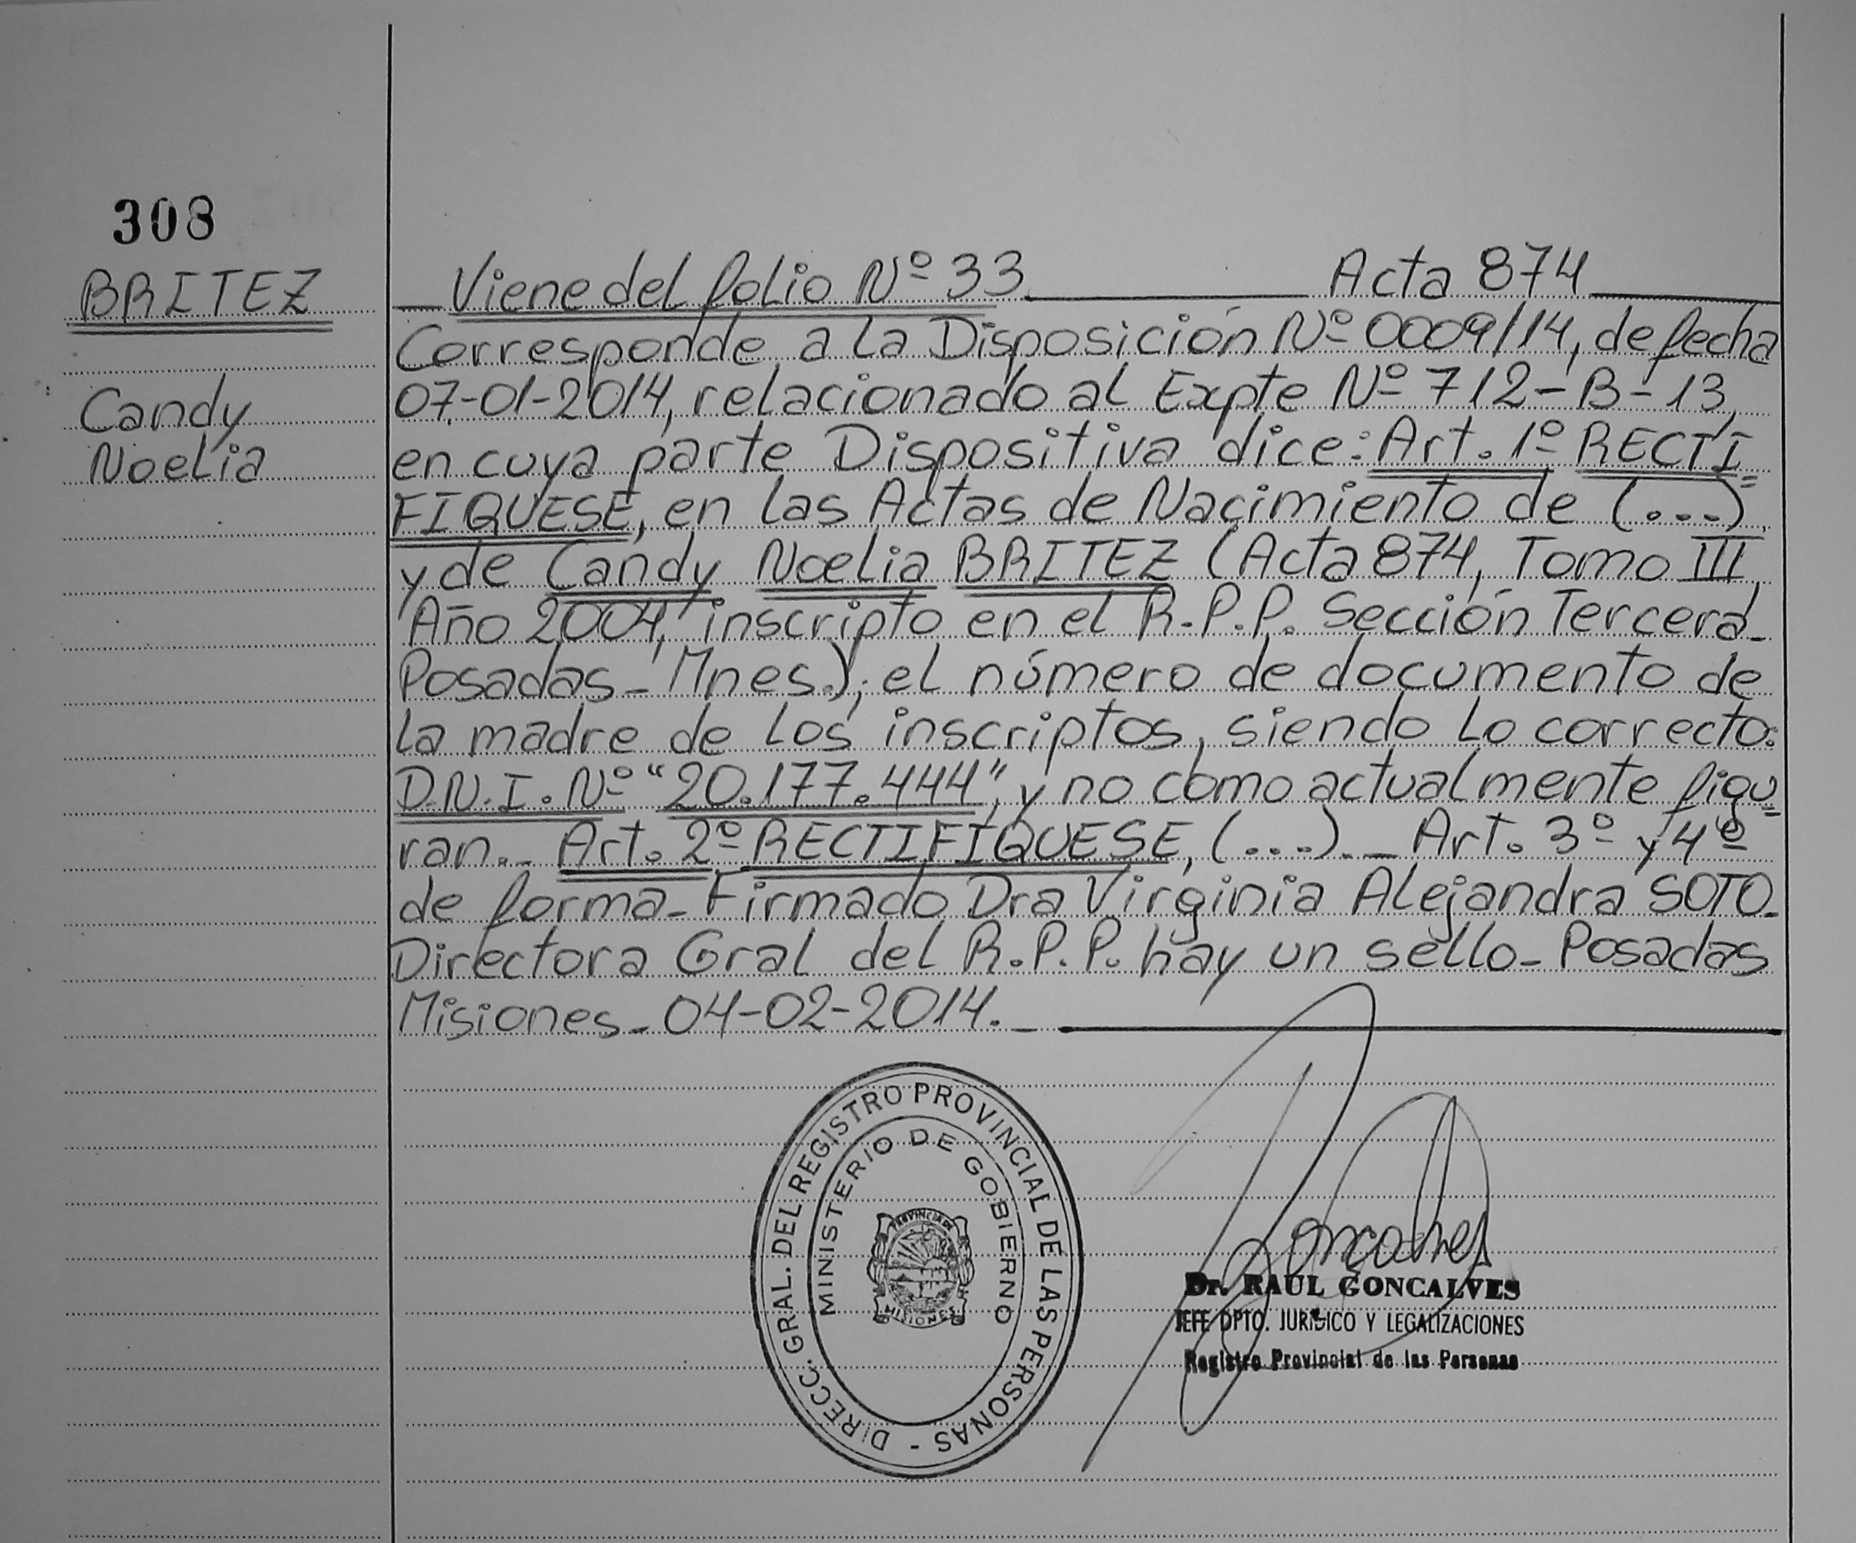 308
BRITEZ
Candy
Noelia
Viene del folio Nº 33 Acta 874
Corresponde a la Disposición Nº 0009/14, de fecha
07-01-2014, relacionado al Expte Nº 712-B-13,
en cuya parte Dispositiva dice: Art. 1º RECTI=
FIQUESE, en las Actas de Nacimiento de (...)
y de Candy Noelia BRITEZ (Acta 874, Tomo III,
Año 2004, inscripto en el R.P.P. Sección Tercera-
Posadas-Mnes.), el número de documento de
la madre de los inscriptos, siendo lo correcto:
D.N.I. Nº "20.177.444", y no como actualmente figu=
ran.- Art. 2º RECTIFIQUESE, (...).- Art. 3º y 4º
de forma- Firmado Dra Virginia Alejandra SOTO-
Directora Gral del R.P.P. hay un sello- Posadas
Misiones- 04-02-2014.-
DIRECC. GRAL. DEL REGISTRO PROVINCIAL DE LAS PERSONAS -
MINISTERIO DE GOBIERNO
PROVINCIA DE
MISIONES
Goncalves
Dr. RAUL GONCALVES
JEFE DPTO. JURIDICO Y LEGALIZACIONES
Registro Provincial de las Personas